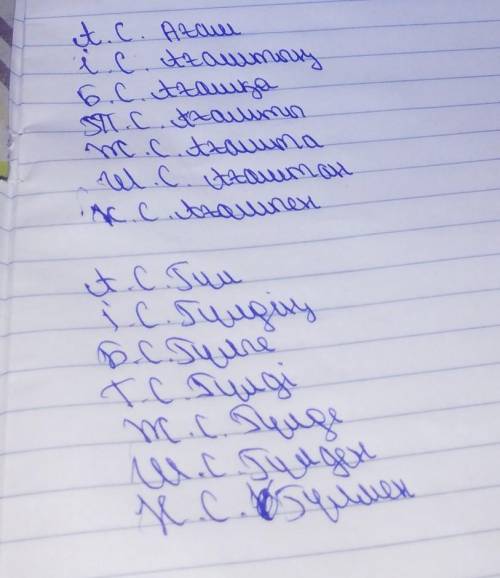 А. С. Ағаш
І. С. Ағаштың
Б. С. Ағашқа
Т. С. Ағашты
Ж. С. Ағашта
Ш. С. Ағаштан
К. С. Ағашпен
А. С. Гүл
І. С. Гүлдің
Б. С. Гүлге
Т. С. Гүлді
Ж. С. Гүлде
Ш. С. Гүлден
К. С. Гүлмен